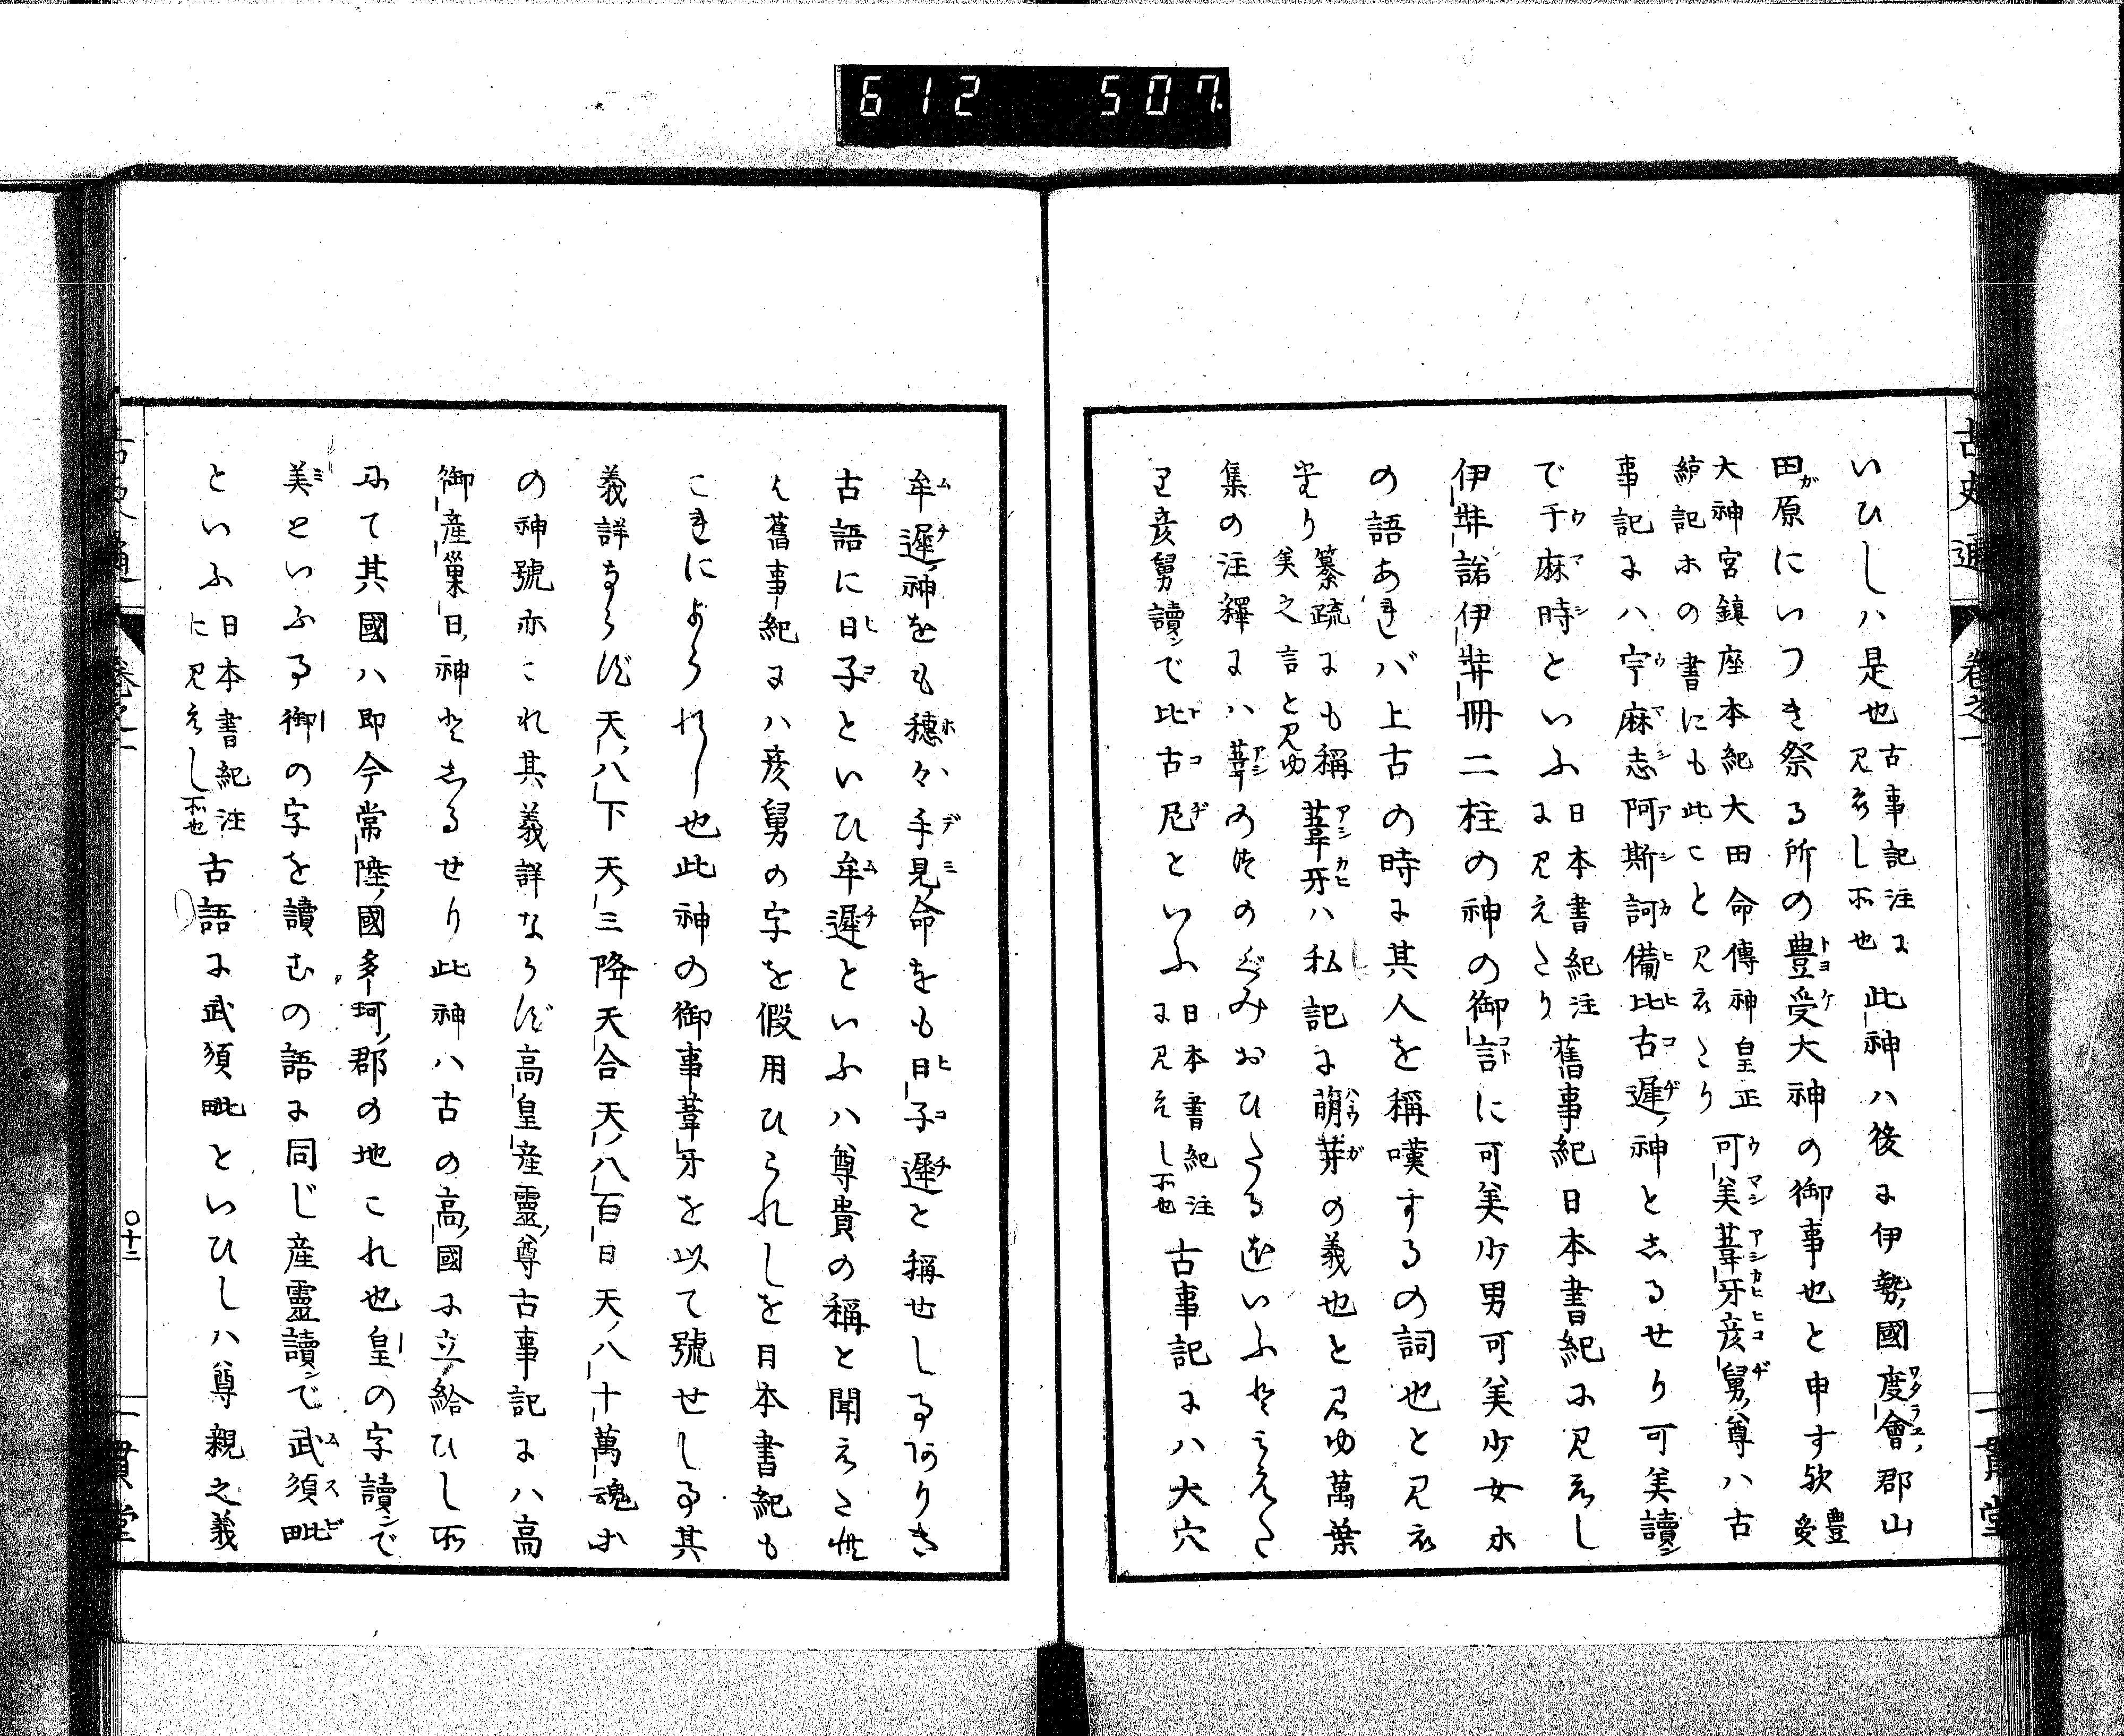 612 507
古史通 卷之一 一貫堂
いひしハ是也古事記注に見えし所也此神ハ後に伊勢國度會郡山
田原にいつき祭る所の豊受大神の御事也と申す歟豊受
大神宮鎮座本紀大田命傳神皇正
統記ホの書にも此こと見えたり可美葦牙彦舅尊ハ古
事記にハ宇麻志阿斯訶備比古遲神としるせり可美讀
で于麻時といふ日本書紀注に見えたり舊事紀日本書紀に見えし
伊弉諾伊弉冊二柱の神の御言に可美少男可美少女ホ
の語あれバ上古の時に其人を稱嘆するの詞也と見え
たり纂疏にも稱美之言と見ゆ葦牙ハ私記に萌芽の義也と見ゆ萬葉
集の注釋にハ葦のつのぐみおひたるをいふとみえた
り彦舅讀で比古尼といふ日本書紀注に見えし所也古事記にハ大穴
牟遲神をも穗々手見命をも日子遲と稱せし事ありき
古語に日子といひ牟遲といふハ尊貴の稱と聞えたれ
ど舊事紀にハ彦舅の字を假用ひられしを日本書紀も
これによられし也此神の御事葦牙を以て號せし事其
義詳ならず天八下天三降天合天八百日天八十萬魂ホ
の神號亦これ其義詳ならず高皇産靈尊古事記にハ高
御産巢日神としるせり此神ハ古の高國に立給ひし所
にて其國ハ即今常陸國多珂郡の地これ也皇の字讀で
美といふ事御の字を讀むの語に同じ産靈讀で武須毗
といふ日本書紀注に見えし所也古語に武須毗といひしハ尊親之義
古史通 卷之一 〇十二 一貫堂